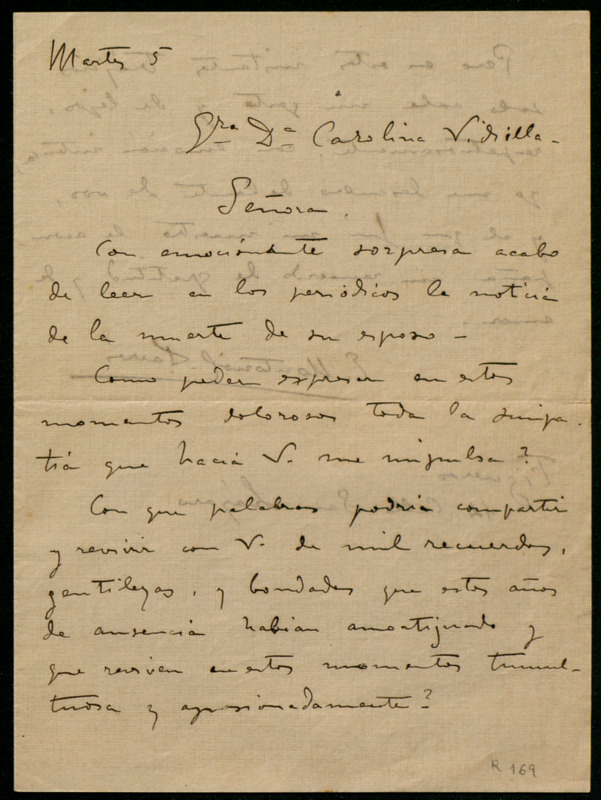 Martes 5
Sra Da Carolina Vidilla-
Señora.
Con emocionante sorpresa acabo
de leer en los periódicos la noticia
de la muerte de su esposo -
Como poder expresar en estos
momentos dolorosos toda la simpa-
tia que hacia V. me impulsa?
Con que palabras podria compartir
y revivir con V. de mil recuerdos,
gentilezas, y bondades que estos años
de ausencia habian amortiguado y
que reviven en estos momentos tumul-
tuosa y apasionadamente?
R 169